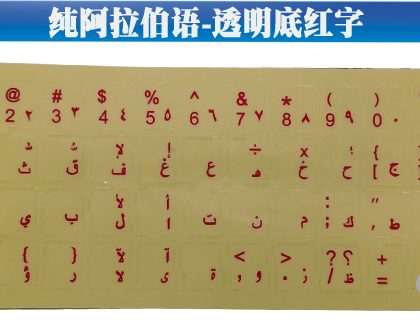 纯阿拉伯语-透明底红字
@ # $ % ^ & * ( )
2 ٢ 3 ٣ 4 ٤ 5 ٥ 6 ٦ 7 ٧ 8 ٨ 9 ٩ 0 ٠
إ ÷ x ؛ { [
ث ق ف غ ع ه خ ح ج ]
أ : "
ي ب ل ا ت ن م ؛ ك , ط
{ } آ < > ? ؟ +
ر ؤ ى ة , و . ز / ظ =